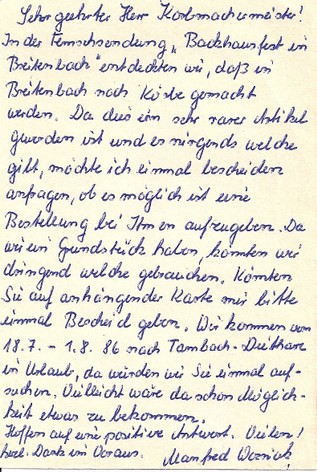 Sehr geehrter Herr Korbmachermeister!
In der Fernsehsendung „Backhausfest in
Breitenbach" entdeckten wir, daß in
Breitenbach noch Körbe gemacht
werden. Da dies ein sehr rarer Artikel
geworden ist und es nirgends welche
gibt, möchte ich einmal bescheiden
anfragen, ob es möglich ist eine
Bestellung bei Ihnen aufzugeben. Da
wir ein Grundstück haben, könnten wir
dringend welche gebrauchen. Könnten
Sie auf anhängender Karte mir bitte
einmal Bescheid geben. Wir kommen vom
18.7. - 1.8. 86 nach Tambach-Dietharz
in Urlaub, da würden wir Sie einmal auf-
suchen. Vielleicht wäre da schon Möglich-
keit etwas zu bekommen.
Hoffen auf eine positive Antwort. Vielen!
herzl. Dank im Voraus. Manfred